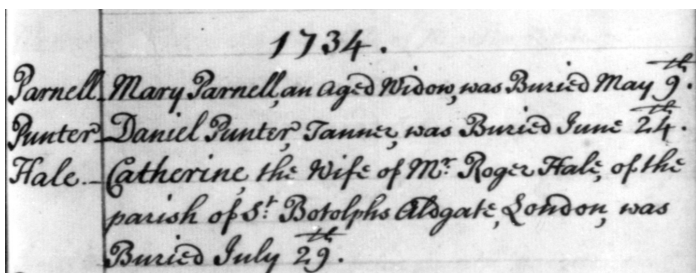 1734.
Parnell Mary Parnell, an Aged Widow, was Buried May 9th.
Punter Daniel Punter, Tanner, was Buried June 24th.
Hale Catherine, the Wife of Mr. Roger Hale, of the
parish of St. Botolphs Aldgate, London, was
Buried July 29th.